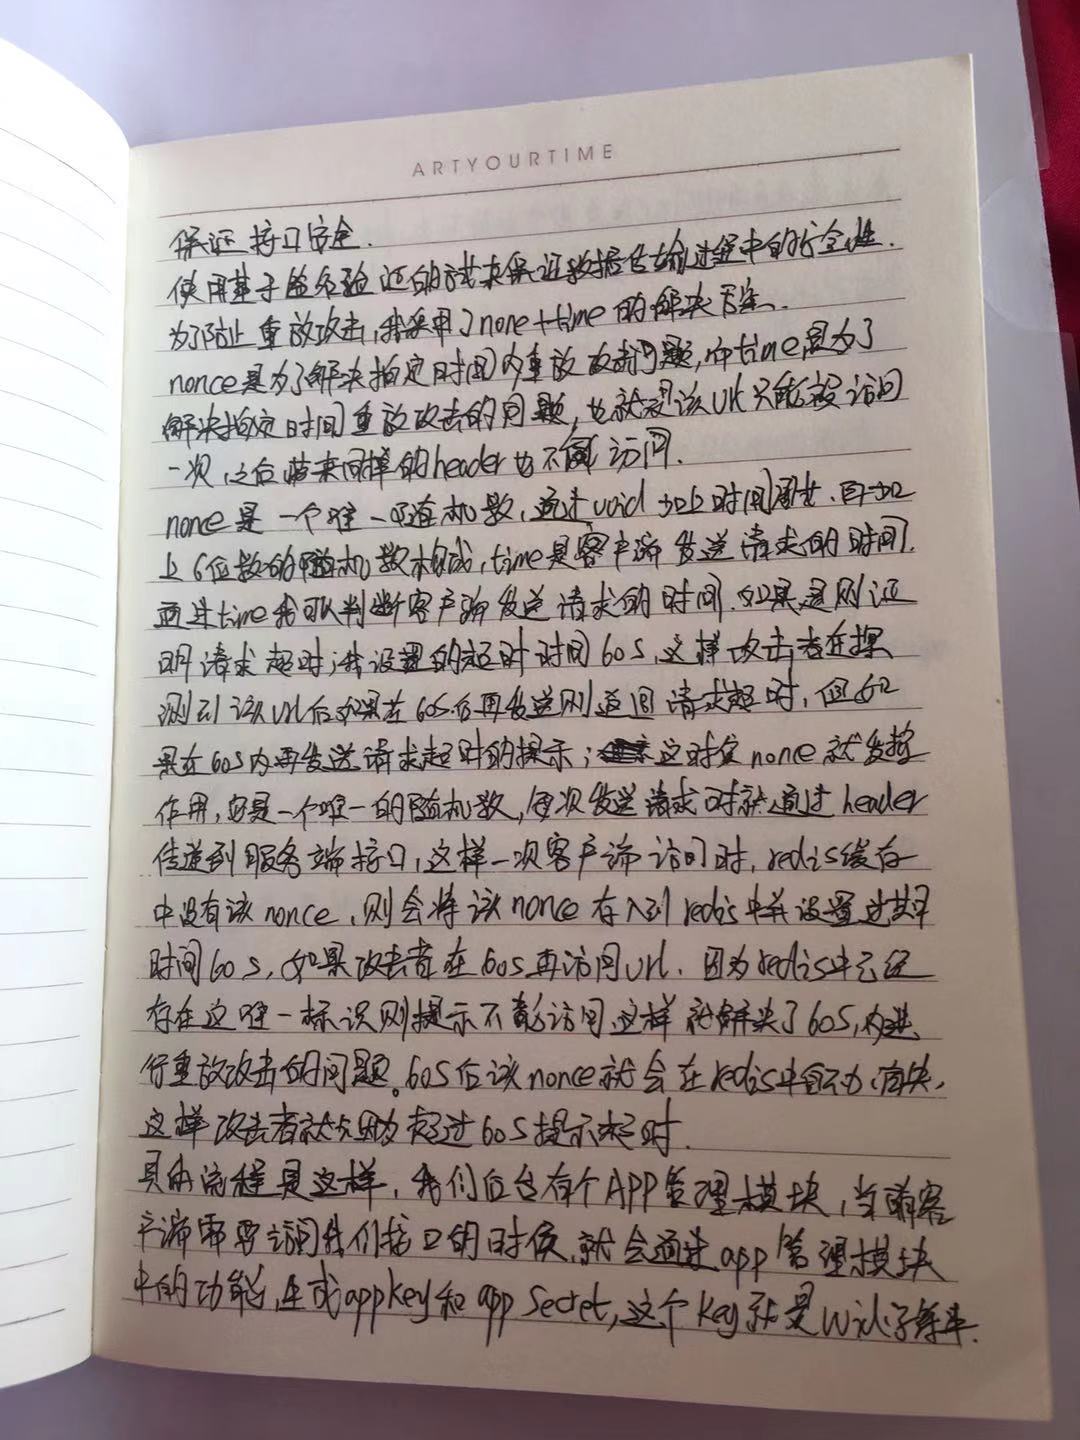 ARTYOURTIME
保证接口安全.
使用基于签名验证的方式来保证数据传输过程中的安全性.
为了防止重放攻击,我采用了none+time的解决方案.
nonce是为了解决指定时间内重放攻击问题,而time是为了
解决指定时间重放攻击的问题,也就是该url只能被访问
一次,之后带来同样的header也不能访问.
none是一个唯一随机数,通过uuid加上时间再加
上6位数的随机数构成,time是客户端发送请求的时间.
通过time我可以判断客户端发送请求的时间.如果是则证
明请求超时;我设置的超时时间60s,这样攻击者在探
测到该url后如果在60s后再发送则返回请求超时,但如
果在60s内再发送请求超时的提示;这时候nonce就发挥
作用,它是一个唯一的随机数,每次发送请求时就通过header
传递到服务端接口,这样一次客户端访问时,redis缓存
中没有该nonce,则会将该nonce存入到redis中并设置过期
时间60s,如果攻击者在60s再访问url.因为redis中已经
存在这唯一标识则提示不能访问.这样就解决了60s,内进
行重放攻击的问题。60s后该nonce就会在redis中自动消失,
这样攻击者就会因为超过60s提示超时.
具体流程是这样,我们后台有个APP管理模块,当前客
户端需要访问我们接口的时候.就会通过app管理模块
中的功能,生成appkey和app secret,这个key就是